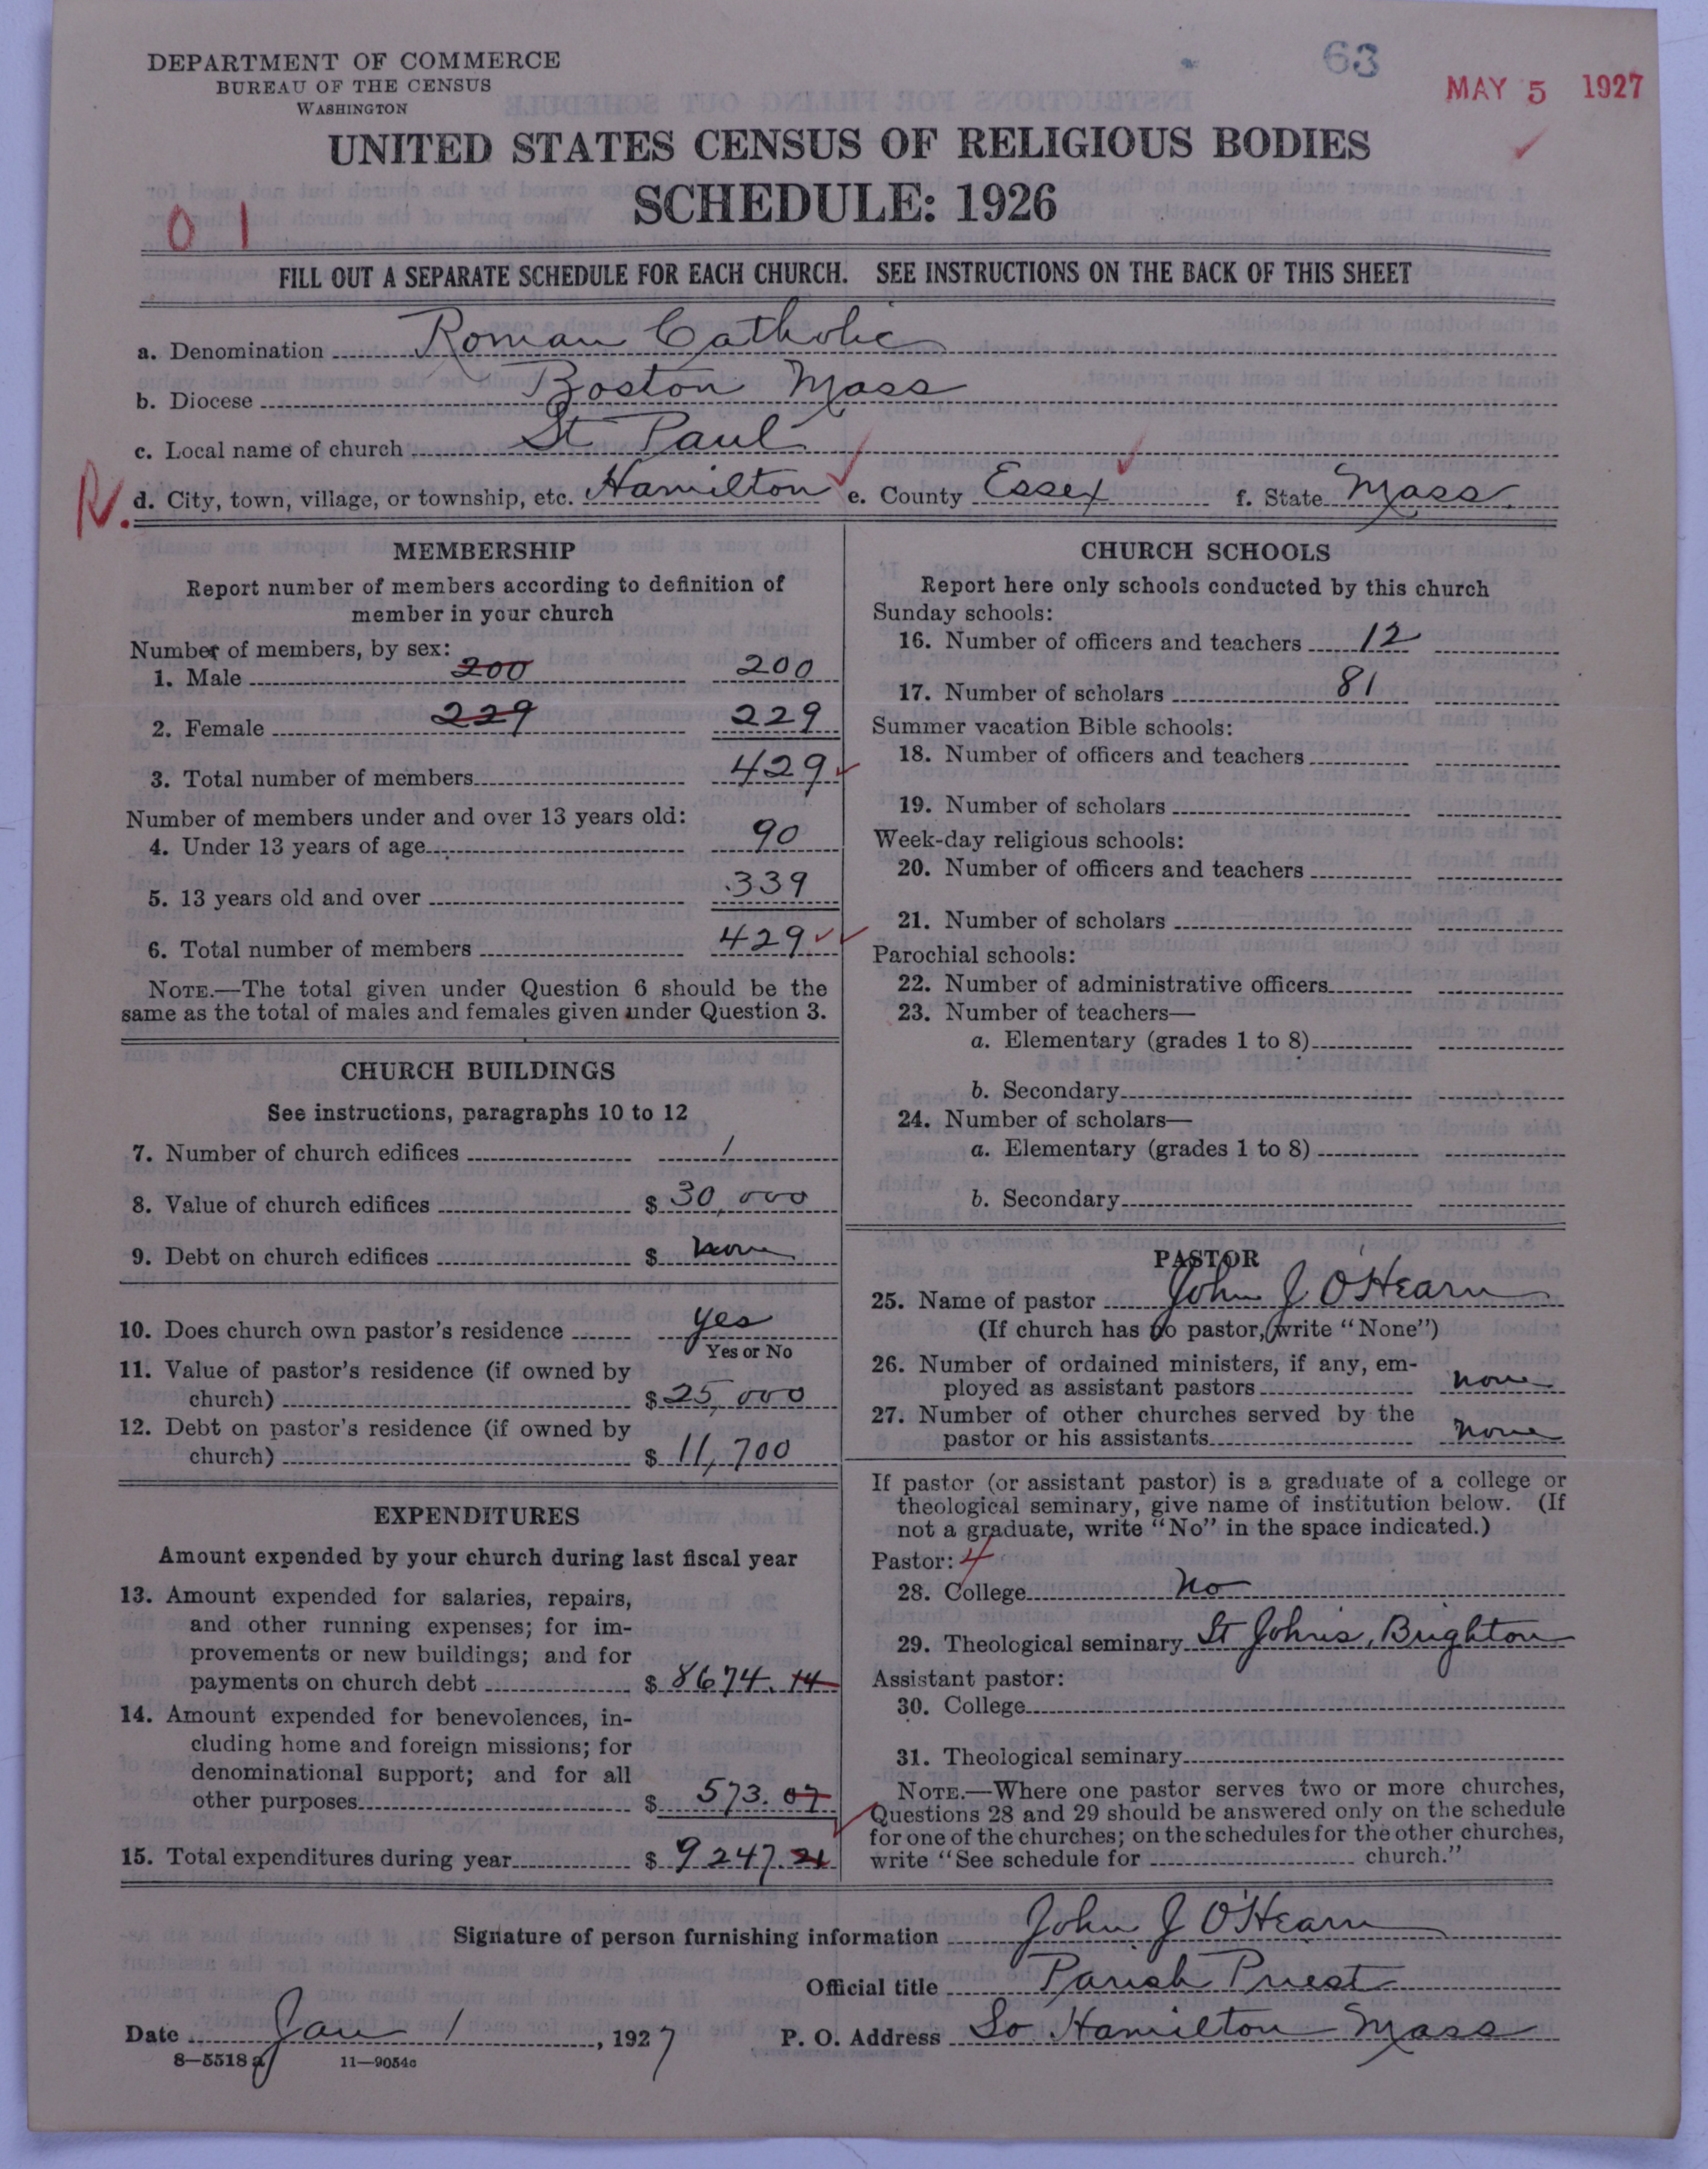 63
MAY 5 1927
DEPARTMENT OF COMMERCE
BUREAU OF THE CENSUS
WASHINGTON
UNITED STATES CENSUS OF RELIGIOUS BODIES
SCHEDULE: 1926
0 1
FILL OUT A SEPARATE SCHEDULE FOR EACH CHURCH. SEE INSTRUCTIONS ON THE BACK OF THIS SHEET
a. Denomination Roman Catholic
b. Diocese Boston Mass
c. Local name of church St Paul
R. d. City, town, village, or township, etc. Hamilton e. County Essex f. State Mass.
MEMBERSHIP
Report number of members according to definition of
member in your church
Number of members, by sex:
1. Male 200 200
2. Female 229 229
3. Total number of members 429
Number of members under and over 13 years old:
4. Under 13 years of age 90
5. 13 years old and over 339
6. Total number of members 429
NOTE.—The total given under Question 6 should be the
same as the total of males and females given under Question 3.
CHURCH BUILDINGS
See instructions, paragraphs 10 to 12
7. Number of church edifices 1
8. Value of church edifices $ 30,000
9. Debt on church edifices $ none
10. Does church own pastor's residence yes
Yes or No
11. Value of pastor's residence (if owned by
church) $ 25,000
12. Debt on pastor's residence (if owned by
church) $ 11,700
EXPENDITURES
Amount expended by your church during last fiscal year
13. Amount expended for salaries, repairs,
and other running expenses; for im-
provements or new buildings; and for
payments on church debt $ 8674.14
14. Amount expended for benevolences, in-
cluding home and foreign missions; for
denominational support; and for all
other purposes $ 573.07
15. Total expenditures during year $ 9247.21
CHURCH SCHOOLS
Report here only schools conducted by this church
Sunday schools:
16. Number of officers and teachers 12
17. Number of scholars 81
Summer vacation Bible schools:
18. Number of officers and teachers
19. Number of scholars
Week-day religious schools:
20. Number of officers and teachers
21. Number of scholars
Parochial schools:
22. Number of administrative officers
23. Number of teachers—
a. Elementary (grades 1 to 8)
b. Secondary
24. Number of scholars—
a. Elementary (grades 1 to 8)
b. Secondary
PASTOR
25. Name of pastor John J O'Hearn
(If church has no pastor, write "None")
26. Number of ordained ministers, if any, em-
ployed as assistant pastors none
27. Number of other churches served by the
pastor or his assistants none
If pastor (or assistant pastor) is a graduate of a college or
theological seminary, give name of institution below. (If
not a graduate, write "No" in the space indicated.)
Pastor: 4
28. College No
29. Theological seminary St Johns, Brighton
Assistant pastor:
30. College
31. Theological seminary
NOTE.—Where one pastor serves two or more churches,
Questions 28 and 29 should be answered only on the schedule
for one of the churches; on the schedules for the other churches,
write "See schedule for church."
Signature of person furnishing information John J O'Hearn
Official title Parish Priest
Date Jan 1, 1927 P. O. Address So Hamilton Mass
8—5518 a 11—9054c